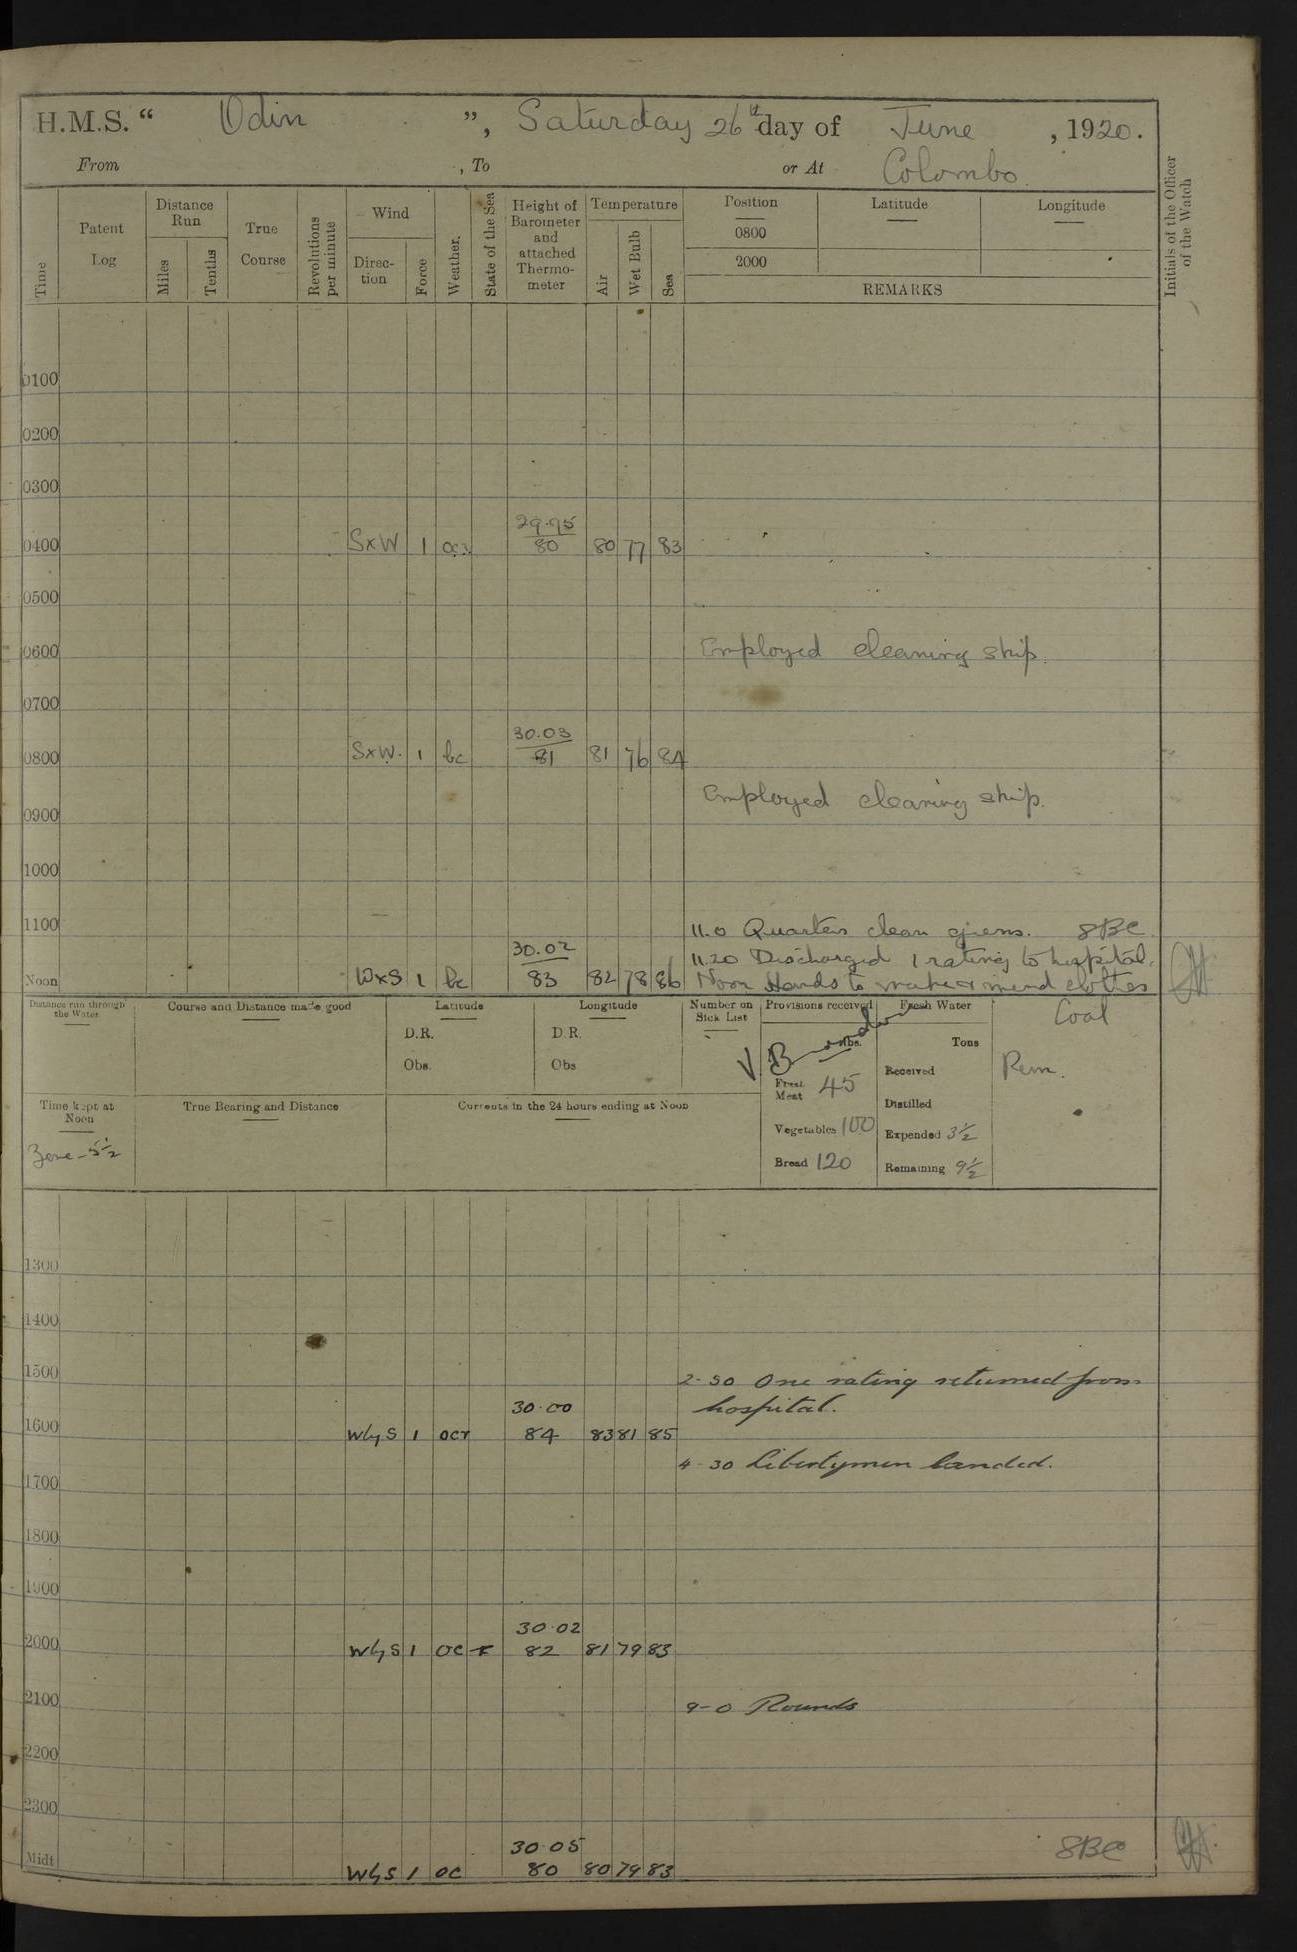 H.M.S. “ Odin ”, Saturday 26th day of June , 1920.
From , To or At Colombo
Time
Patent Log
Distance Run
Miles
Tenths
True Course
Revolutions per minute
Wind
Direc-tion
Force
Weather.
State of the Sea
Height of Barometer and attached Thermo-meter
Temperature
Air
Wet Bulb
Sea
Position Latitude Longitude
0800
2000
REMARKS
Initials of the Officer of the Watch
0100
0200
0300
29.95
0400 SxW 1 80 80 77 83
0500
0600 Employed cleaning ship.
0700
30.03
0800 SxW. 1 bc 81 81 76 84
Employed cleaning ship.
0900
1000
1100 11.0 Quarters clean guns. 8BC
30.02 11.20 Discharged 1 rating to hospital.
Noon WxS 1 bc 83 82 78 86 Noon Hands to make & mend clothes
Distance run through the Water
Course and Distance made good
Latitude
D.R.
Obs.
Longitude
D.R.
Obs
Number on Sick List
Provisions received
lbs.
Fresh Meat 45
Vegetables 100
Bread 120
Fresh Water
Tons
Received
Distilled
Expended 3½
Remaining 9½
Coal
Rem.
Time kept at Noon
Zone -5½
True Bearing and Distance
Currents in the 24 hours ending at Noon
1300
1400
1500 2-30 One rating returned from
30.00 hospital.
1600 WbyS 1 ocr 84 83 81 85
4-30 Libertymen landed.
1700
1800
1900
30.02
2000 WbyS 1 oc r 82 81 79 83
2100 9-0 Rounds
2200
2300
30.05 8BC
Midt WbyS 1 oc 80 80 79 83